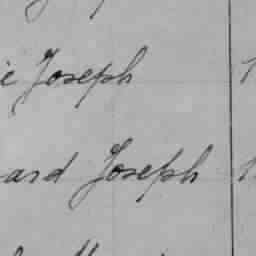 e Joseph
ard Joseph